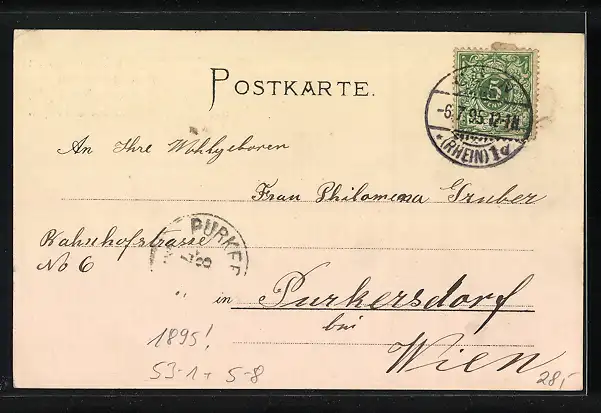 POSTKARTE.
5
-6.7.95.12-1N.
*(RHEIN) 1d
An Ihre Wohlgeboren
Frau Philomena Gruber
Bahnhofstrasse
No 6
PURKE
" in Purkersdorf
bei
Wien
1895!
S3-1+ S-8
28,-